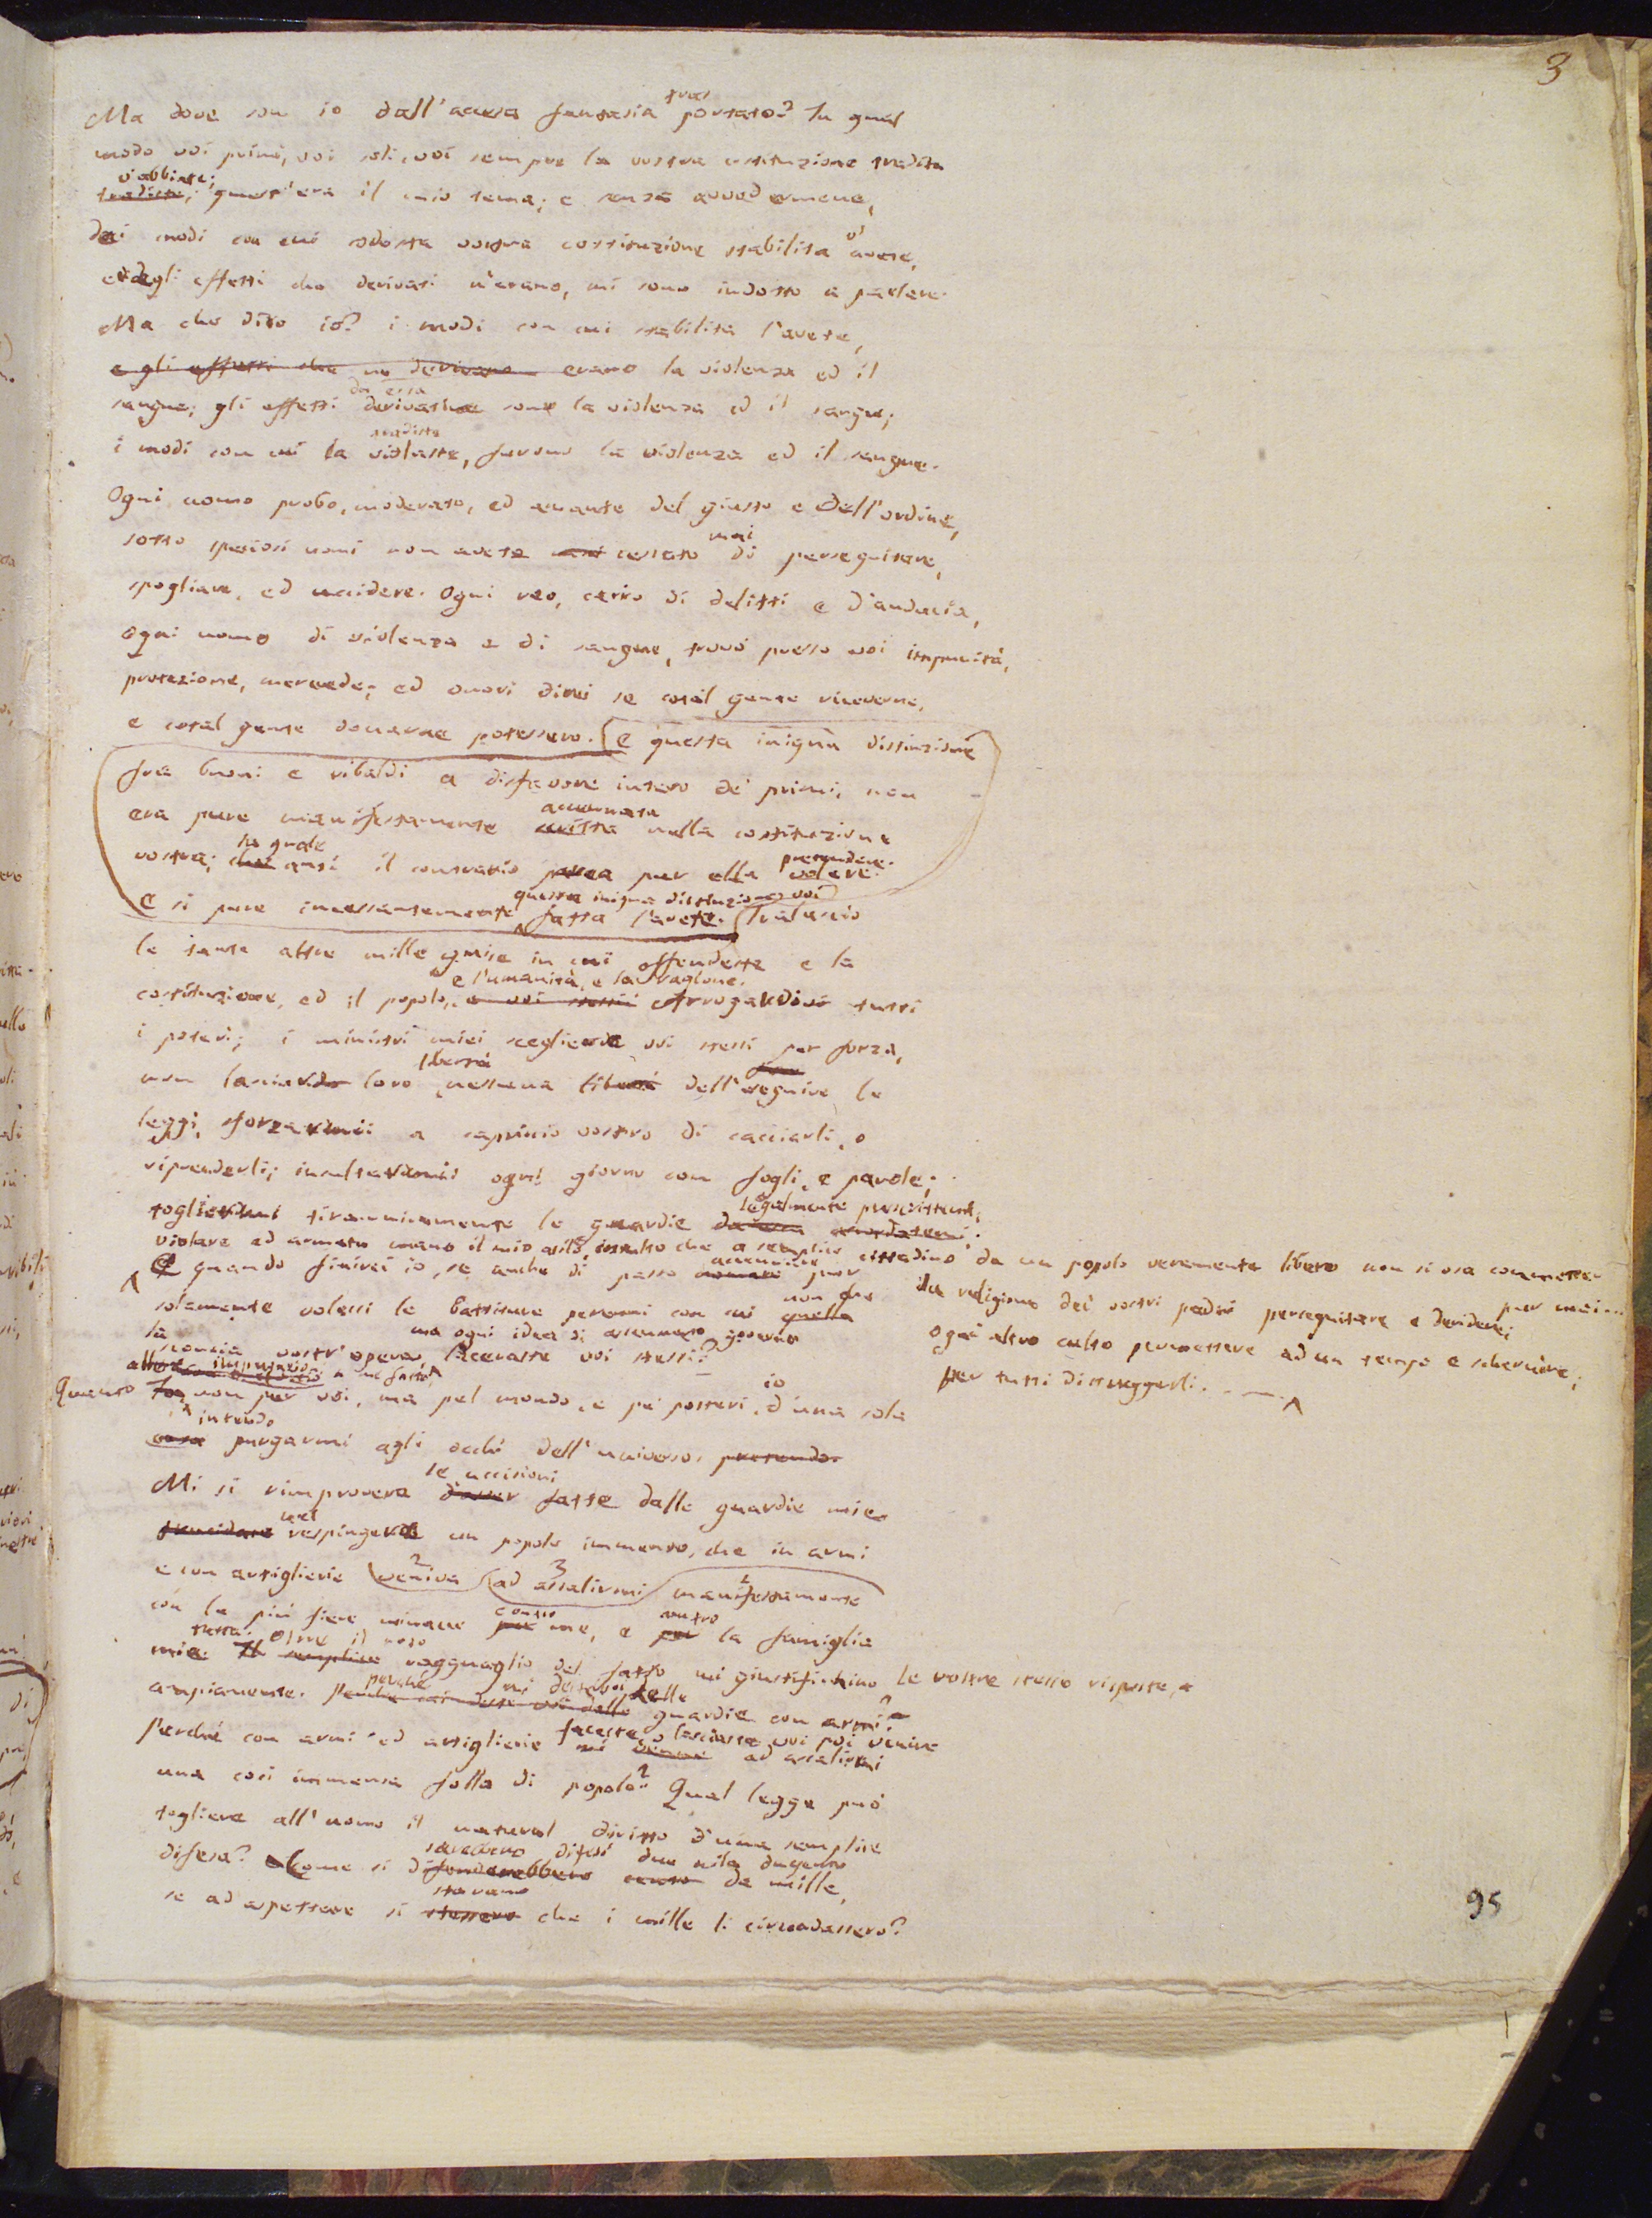 3
Ma dove son io dall'accesa fantasia portato? In qual
modo voi primi, voi soli, voi sempre la vostra costituzione tradita
v'abbiate;
tradiste; quest'era il mio tema; e senza avvedermene,
dei modi con cui codesta vostra costituzione stabilita v'avete,
e degli effetti che derivati n'erano, mi sono indotto a parlare.
Ma che dico io? i modi con cui stabilita l'avete,
e gli effetti che ne derivano erano la violenza ed il
da essa
sangue; gli effetti derivatine sono la violenza ed il sangue;
tradiste
i modi con cui la violaste, furono la violenza ed il sangue.
Ogni uomo probo, moderato, ed amante del giusto e dell'ordine,
mai
sotto speciosi nomi non avete mai cessato di perseguitare,
spogliare, ed uccidere. Ogni reo, carco di delitti e d'audacia,
ogni uomo di violenza e di sangue, trovò presso voi impunità,
protezione, mercede; ed onori direi se cotal gente riceverne,
e cotal gente donarne potessero. E questa iniqua distinzione
fra buoni e ribaldi a disfavore intero de' primi, non
accennata
era pure manifestamente scritta nella costituzione
la quale pretendere.
vostra; che anzi il contrario parea pur ella volere.
questa iniqua distinzione voi
E si pure incessantemente fatta l'avete. Tralascio
le tante altre mille guise in cui offendeste e la
e l'umanità, e la ragione.
costituzione, ed il popolo, e voi stessi Arrogandovi tutti
i poteri; i ministri miei scegliere voi stessi per forza,
libertà
non lasciando loro nessuna libertà dell'eseguire le
leggi, sforzarmi a capriccio vostro di cacciarli, o
riprenderli; insultarmi ogni giorno con fogli, e parole;
legalmente
togliermi tirannicamente le guardie
violare ed armata mano il mio asilo, insulto che a semplice cittadino da un popolo veramente libero non si osa commettere
E quando finirei io, se anche di passo accennare pur
la religione dei vostri padri perseguitare e deridere; pur mai
solamente volessi le battiture perenni con cui non che quella
ogni altro culto permettere ad un tempo e schernire;
ma ogni idea di governo
vostr'opera, laceraste voi stessi?
per tutti distruggerli.
a me fatto
Quanto non per voi, ma pel mondo, e pe' posteri, io d'una sola
intendo
cosa purgarmi agli occhi dell'universo, pretendo.
le uccisioni
Mi si rimprovera d'aver fatte dalle guardie mie
nel
trucidare respingere un popolo immenso, che in armi
2 3 1
e con artiglierie veniva ad assalirmi manifestamente
contro contro
con le più fiere minacce per me, e per la famiglia
tutta. Oltre il
mia. Il semplice ragguaglio del fatto mi giustifichino le vostre stesse risposte,
perché mi deste voi delle
ampiamente. guardie con armi?
faceste, o lasciaste voi poi venire
Perché con armi ed artiglierie mi venne ad assalirmi
una così immensa folla di popolo? Qual legge può
togliere all'uomo il natural diritto d'una semplice
sarebbero difesi due mila dugento
difesa? Come si difenderebbero cento da mille,
stavano
se ad aspettare si stessero che i mille li circondassero?
95